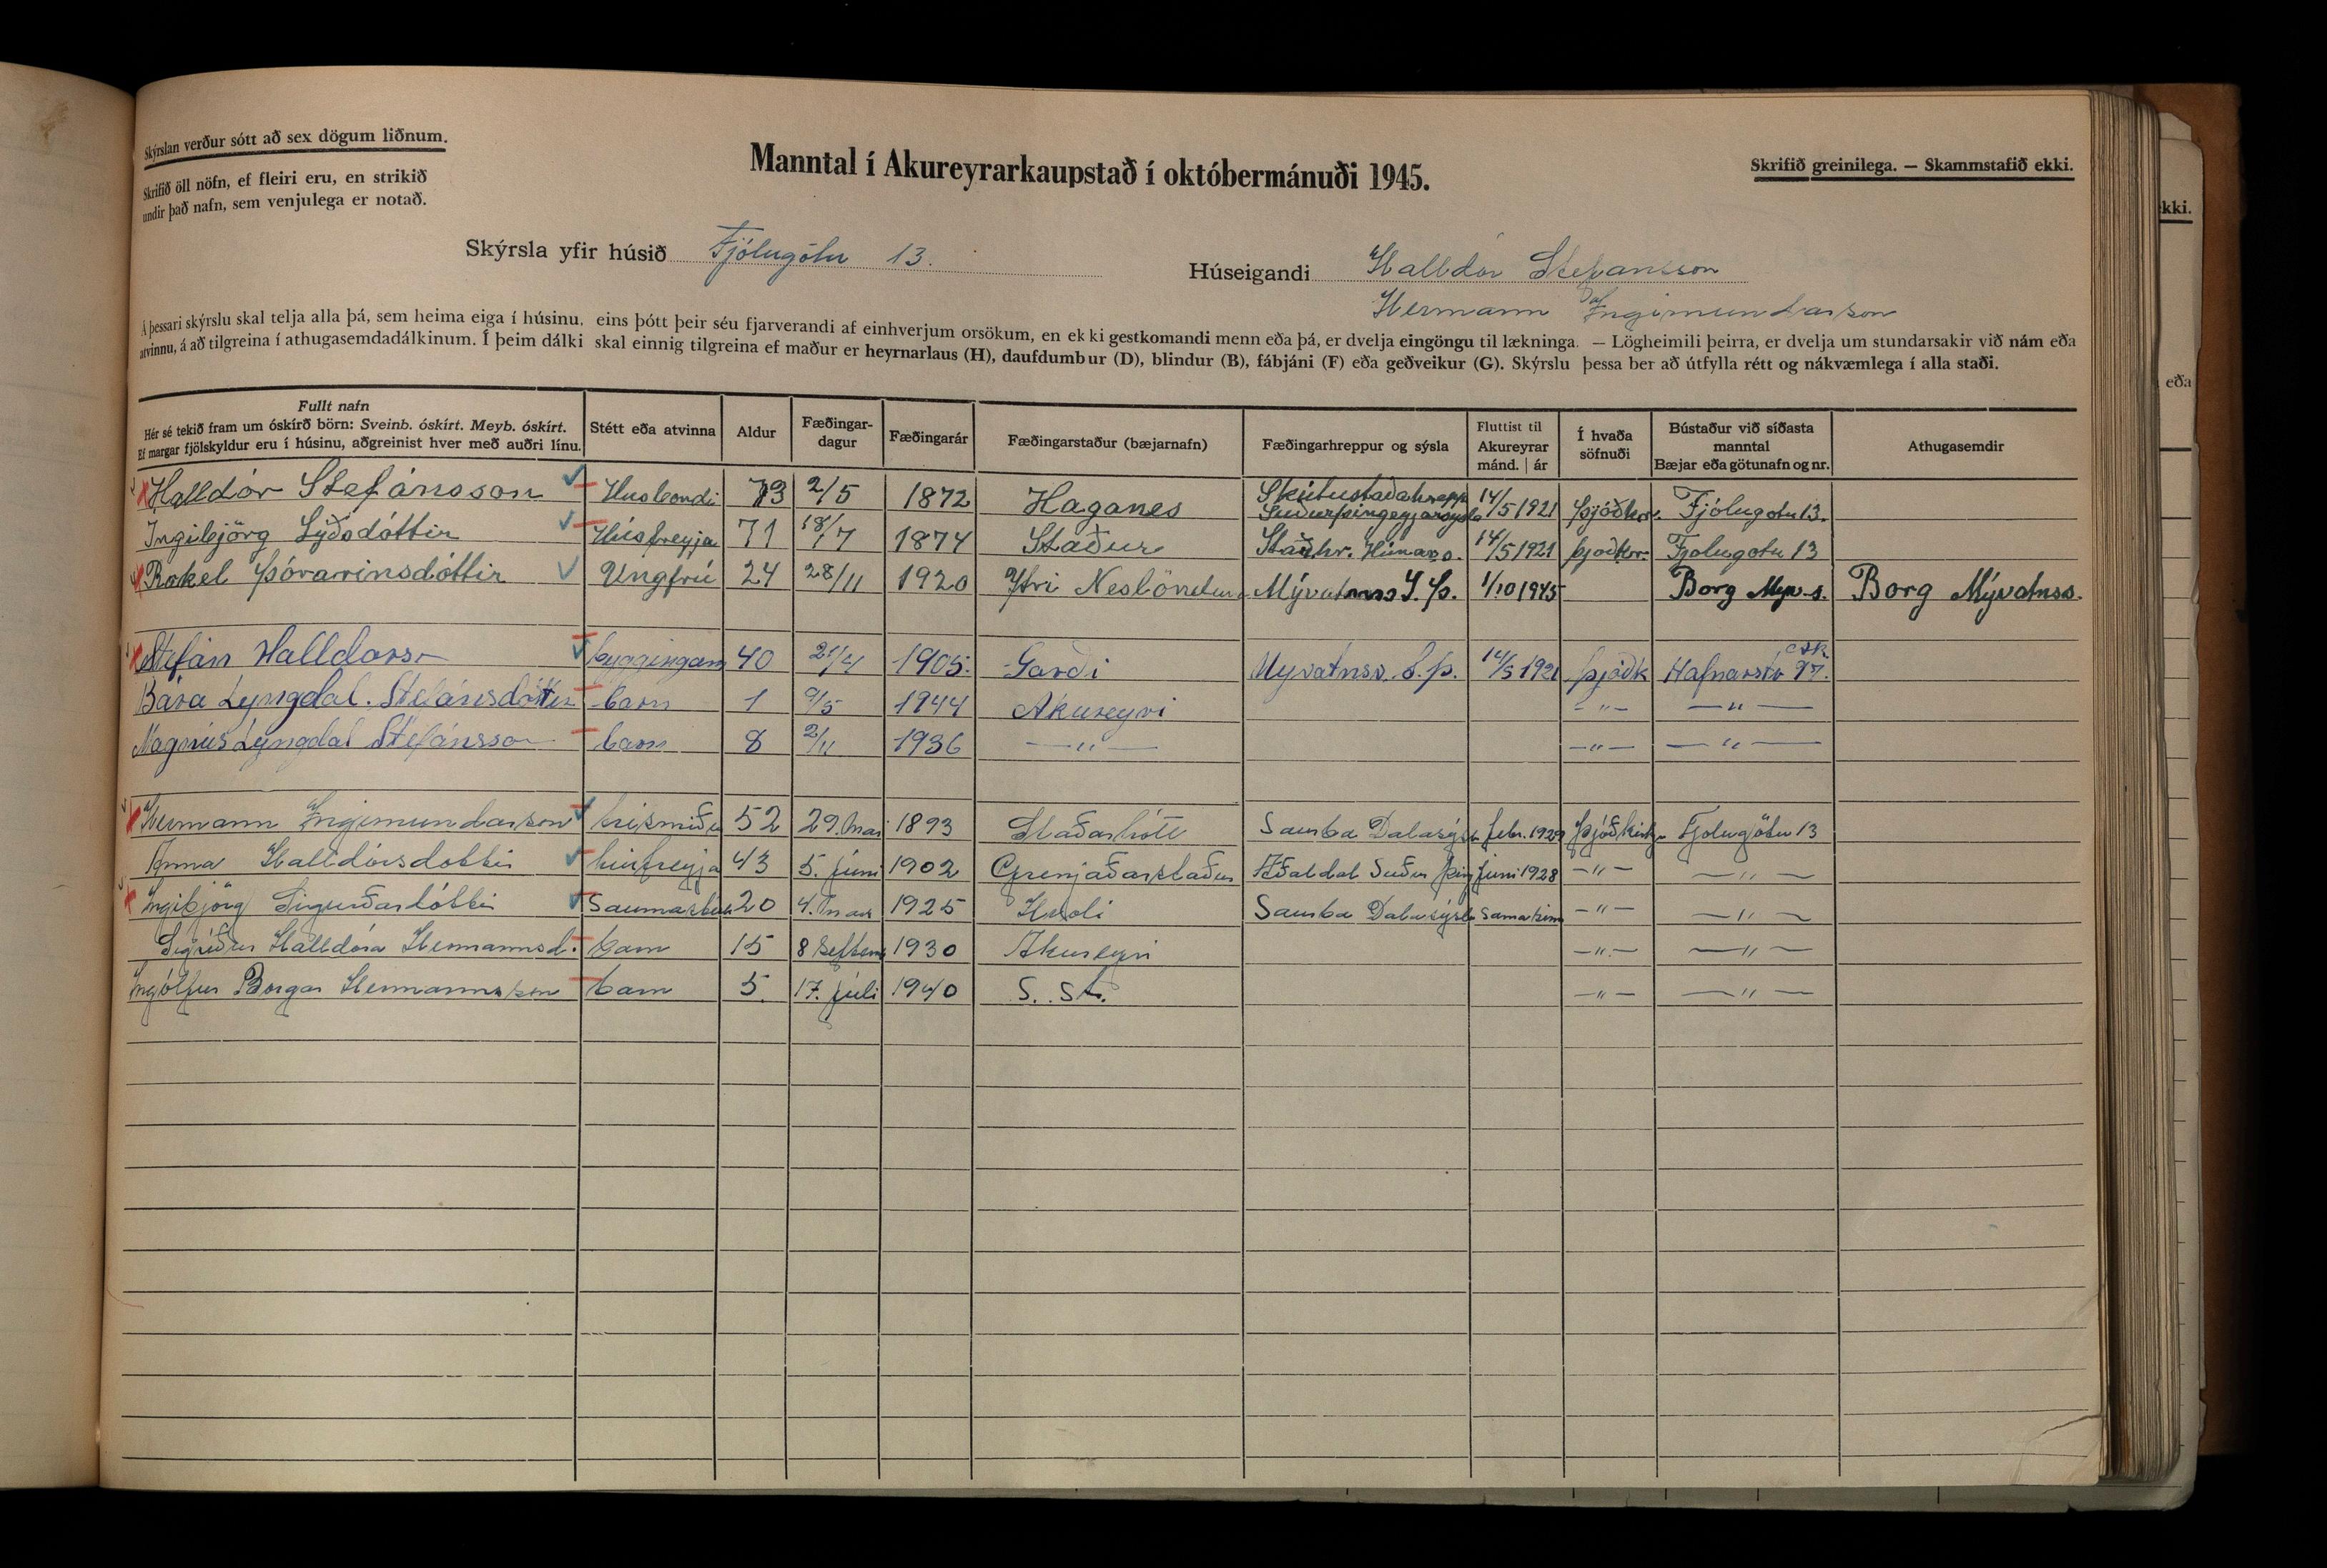 Skýrslan verður sótt að sex dögum liðnum.
Skrifið öll nöfn, ef fleiri eru, en strikið
undir það nafn, sem venjulega er notað.
Manntal í Akureyrarkaupstað í októbermánuði 1945.
Skrifið greinilega. — Skammstafið ekki.
kki.
Skýrsla yfir húsið Fjólugötu 13.
Húseigandi Halldór Stefansson
Hermann Ingimundarson
Á þessari skýrslu skal telja alla þá, sem heima eiga í húsinu, eins þótt þeir séu fjarverandi af einhverjum orsökum, en ekki gestkomandi menn eða þá, er dvelja eingöngu til lækninga. — Lögheimili þeirra, er dvelja um stundarsakir við nám eða
atvinnu, á að tilgreina í athugasemdadálkinum. Í þeim dálki skal einnig tilgreina ef maður er heyrnarlaus (H), daufdumbur (D), blindur (B), fábjáni (F) eða geðveikur (G). Skýrslu þessa ber að útfylla rétt og nákvæmlega í alla staði.
eða
Fullt nafn
Hér sé tekið fram um óskírð börn: Sveinb. óskírt. Meyb. óskírt.
Ef margar fjölskyldur eru í húsinu, aðgreinist hver með auðri línu.
Stétt eða atvinna
Aldur
Fæðingar-
dagur
Fæðingarár
Fæðingarstaður (bæjarnafn)
Fæðingarhreppur og sýsla
Fluttist til
Akureyrar
mánd. | ár
Í hvaða
söfnuði
Bústaður við síðasta
manntal
Bæjar eða götunafn og nr.
Athugasemdir
Halldór Stefánsson Husbondi 73 2/5 1872 Haganes Skútustaðahrepp Suðurþingeyjarsysla 14/5 1921 þjóðkr. Fjólugotu 13.
Ingibjörg Lýðsdóttir Húsfreyja 71 18/7 1874 Staður Staðhr. Húnavs. 14/5 1921 þjóðkr. Fjolugotu 13
Rakel Þórarinsdóttir Ungfrú 24 28/11 1920 Ytri Neslöndum Mývatnss S. Þ. 1/10 1945 Borg Myv. s. Borg Mývatnss.
Stefán Halldorss 40 21/4 1905. Garði Myvatnsv. S. þ. 14/5 1921 þjóðk Hafnarstr 97.
Bára Lyngdal. Stefánsdóttir barn 1 9/5 1944 Akureyri -"- -"-
Magnús Lyngdal Stefánsson barn 8 2/11 1936 -"- -"- -"-
Hermann Ingimundarson trésmiður 52 29. Mai 1893 Staðarhóll Saurba Dalasýsl febr. 1929 Þjóðkirkju Fjolugötu 13
Anna Halldórsdottir húsfreyja 43 5. Júni 1902 Grenjaðarstaður Aðaldal Suður þing Júni 1928 -"- -"-
Ingibjörg Sigurðardóttir Saumastúlk 20 4. Mars 1925 Hvoli Saurba Dalasýsl -"- -"-
Sigríður Halldóra Hermannsd. barn 15 8 Septem 1930 Akureyri -"- -"-
Ingólfur Borgar Hermannsson barn 5. 17. júli 1940 S. St. -"- -"-